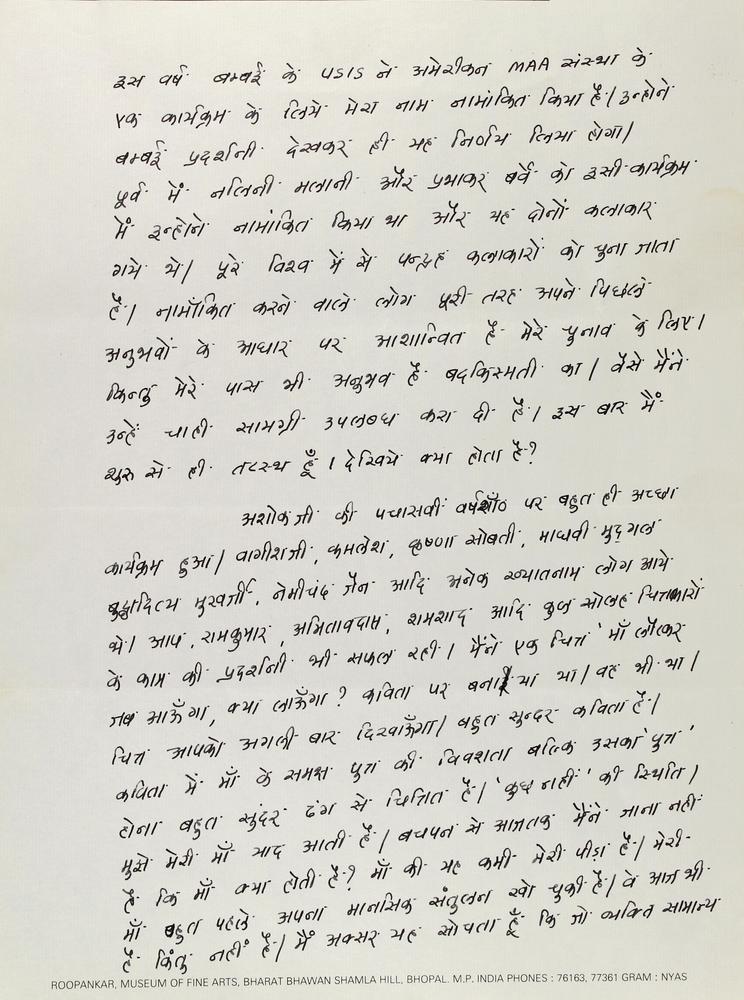 इस वर्ष बम्बई के USIS ने अमेरीकन MAA संस्था के
एक कार्यक्रम के लिये मेरा नाम नामांकित किया है। उन्होने
बम्बई प्रदर्शनी देखकर ही यह निर्णय लिया होगा।
पूर्व में नलिनी मलानी और प्रभाकर बर्वे को इसी कार्यक्रम
में इन्होने नामांकित किया था और यह दोनों कलाकार
गये थे। पूरे विश्व में से पन्द्रह कलाकारों को चुना जाता
है। नामाँकित करने वाले लोग पूरी तरह अपने पिछले
अनुभवों के आधार पर आशान्वित है मेरे चुनाव के लिए।
किन्तु मेरे पास भी अनुभव है बदकिस्मती का। वैसे मैंने
उन्हें चाही सामग्री उपलब्ध करा दी है। इस बार मैं
शुरू से ही तटस्थ हूँ। देखिये क्या होता है?
अशोक जी की पचासवीं वर्षगाँठ पर बहुत ही अच्छा
कार्यक्रम हुआ। वागीशजी, कमलेश, कृष्णा सोबती, माधवी मुद्गल
बुद्धादित्य मुखर्जी, नेमीचंद जैन आदि अनेक ख्यातनाम लोग आये
थे। आप, रामकुमार, अमिताव दास, शमशाद आदि कुल सोलह चित्रकारों
के काम की प्रदर्शनी भी सफल रही। मैंने एक चित्र 'माँ लौटकर
जब आऊँगा, क्या लाऊँगा? कविता पर बनाया था। वह भी था।
चित्र आपको अगली बार दिखाऊँगा। बहुत सुन्दर कविता है।
कविता में माँ के समक्ष पुत्र की विवशता बल्कि उसका 'पुत्र'
होना बहुत सुंदर ढंग से चित्रित है। 'कुछ नहीं' की स्थिति।
मुझे मेरी माँ याद आती है। बचपन से आजतक मैंने जाना नहीं
है कि माँ क्या होती है? माँ की यह कमी मेरी पीड़ा है। मेरी
माँ बहुत पहले अपना मानसिक संतुलन खो चुकी है। वे आज भी
है किंतु नहीं है। मैं अक्सर यह सोचता हूँ कि जो व्यक्ति सामान्य
ROOPANKAR, MUSEUM OF FINE ARTS, BHARAT BHAWAN SHAMLA HILL, BHOPAL. M.P. INDIA PHONES : 76163, 77361 GRAM : NYAS